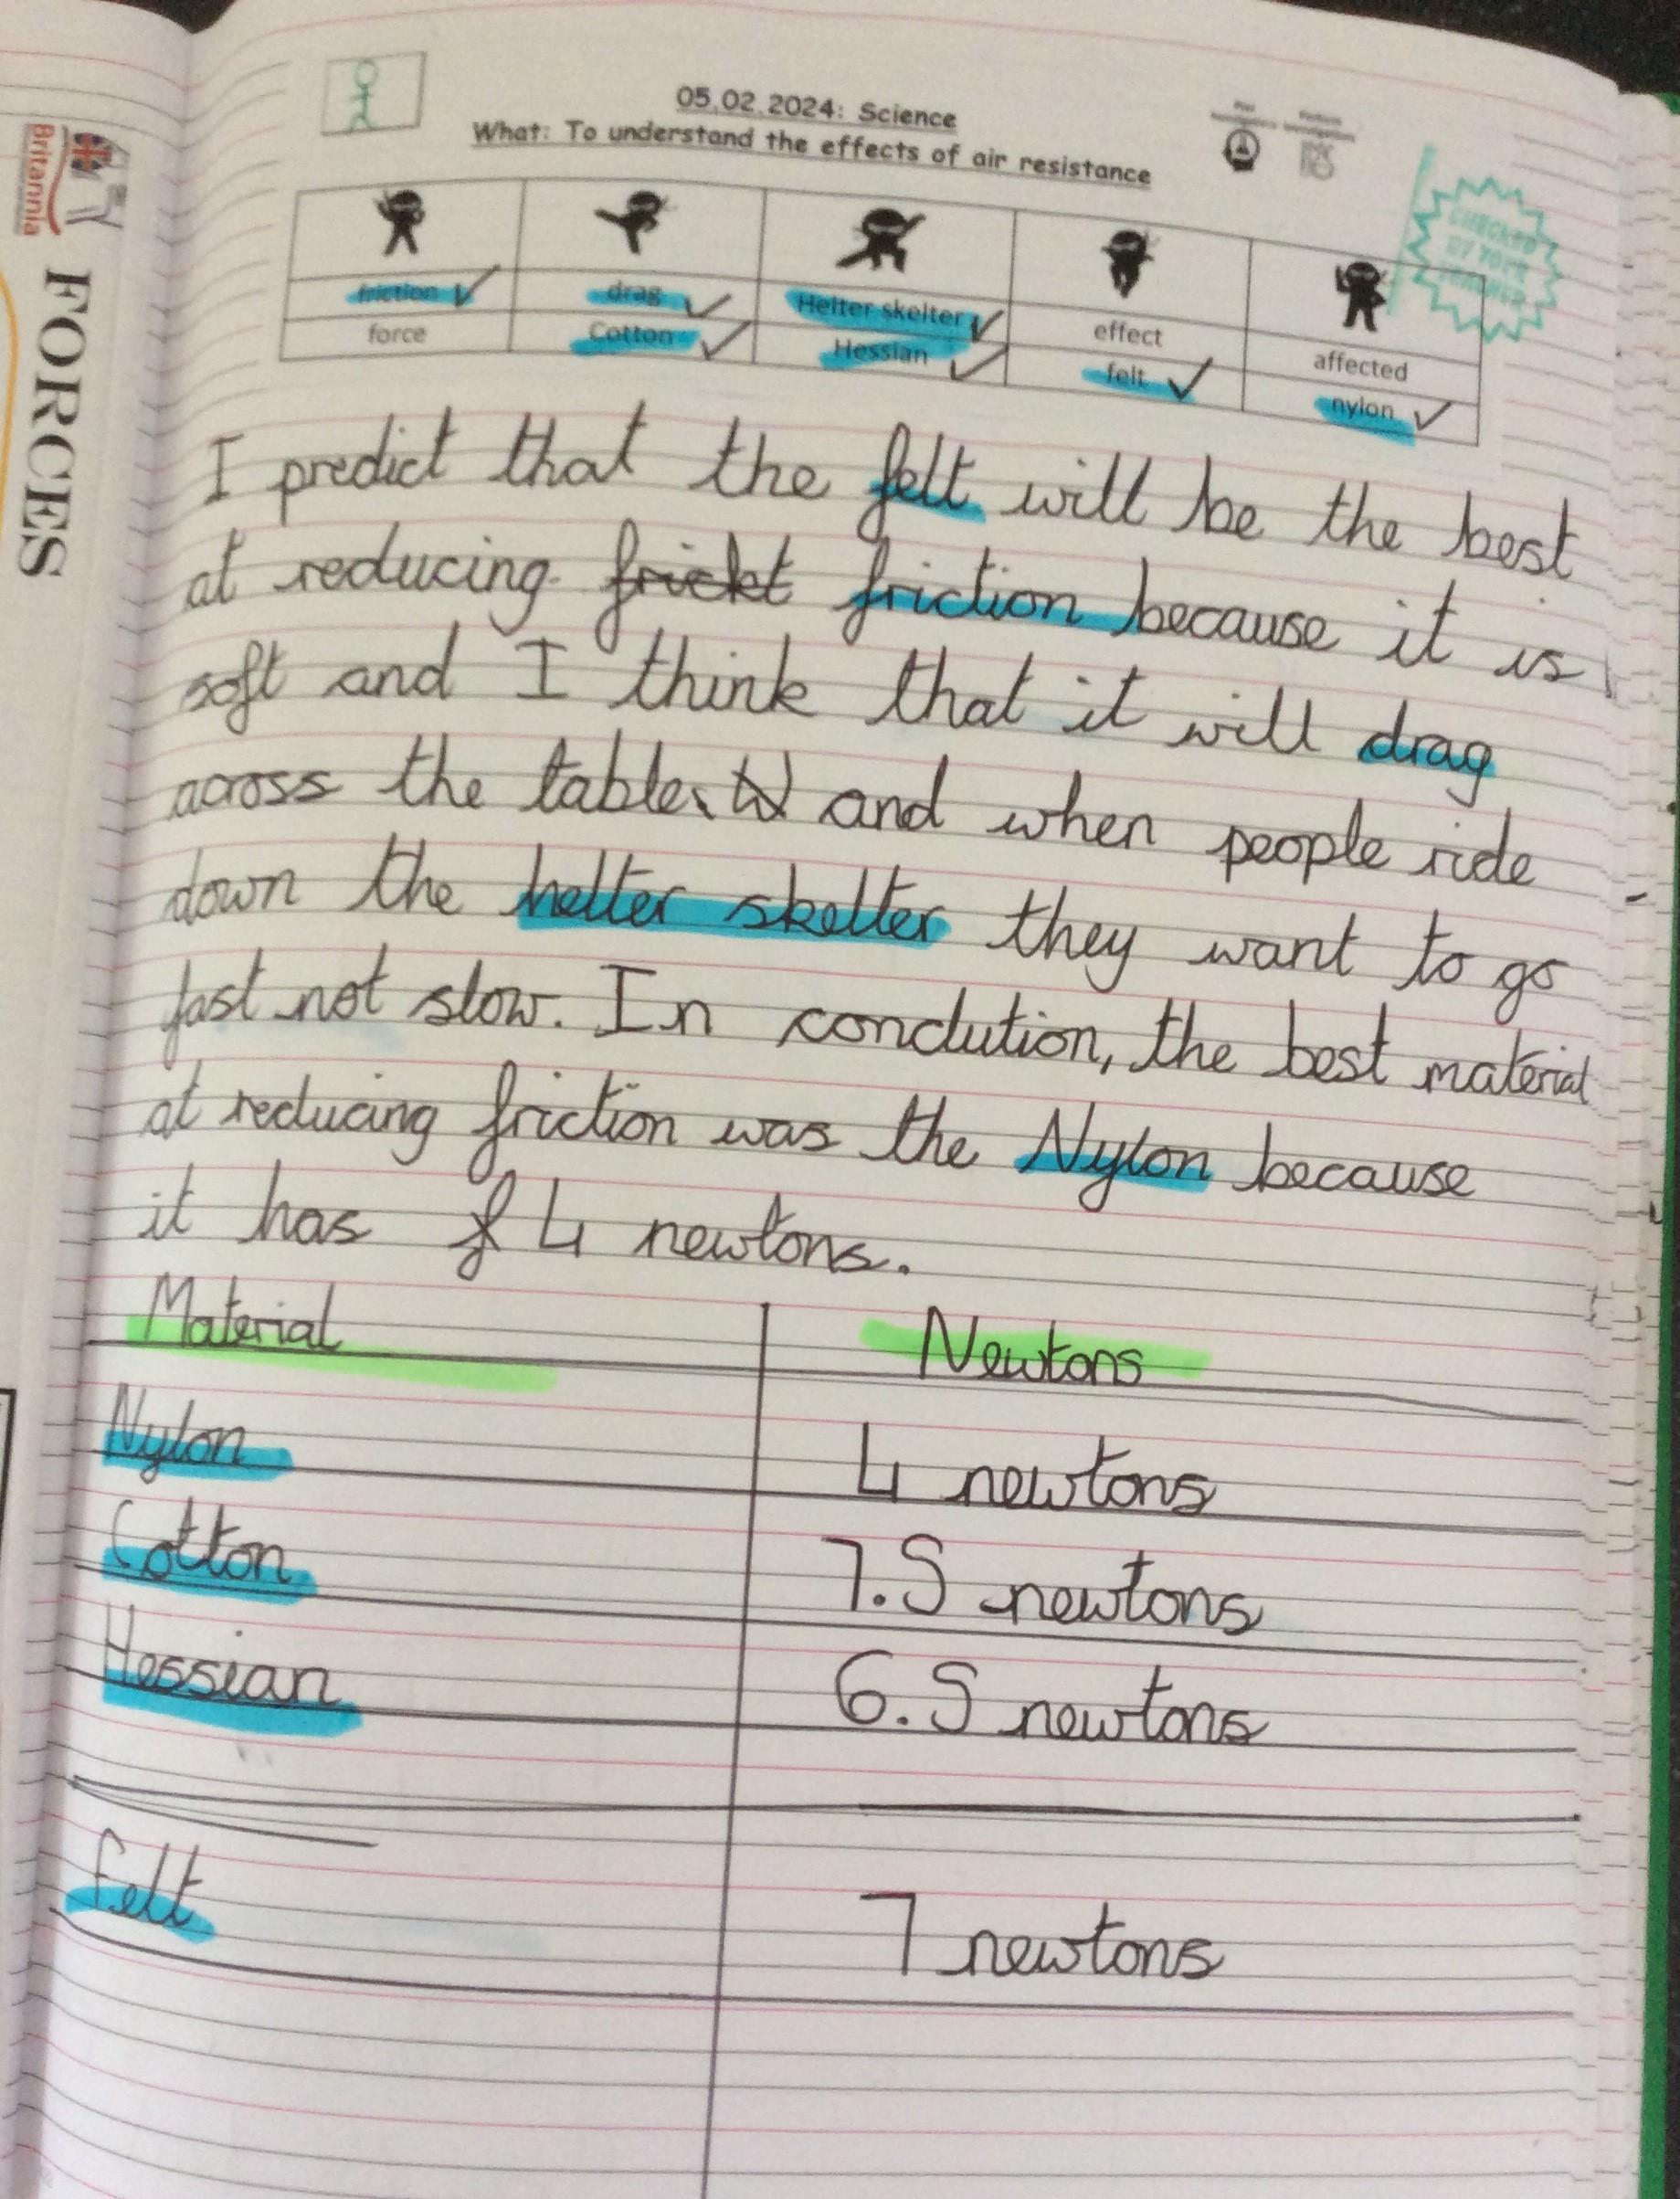 Britannia
FORCES
05.02.2024: Science
What: To understand the effects of air resistance
friction drag Helter skelter effect affected
force Cotton Hessian felt nylon
CHECKED
BY YOUR
I predict that the felt will be the best
at reducing frickt friction because it is
soft and I think that it will drag
across the table. W and when people ride
down the helter skelter they want to go
fast not slow. In conclution, the best material
at reducing friction was the Nylon because
it has f 4 newtons.
Material Newtons
Nylon 4 newtons
Cotton 7.5 newtons
Hessian 6.5 newtons
felt 7 newtons